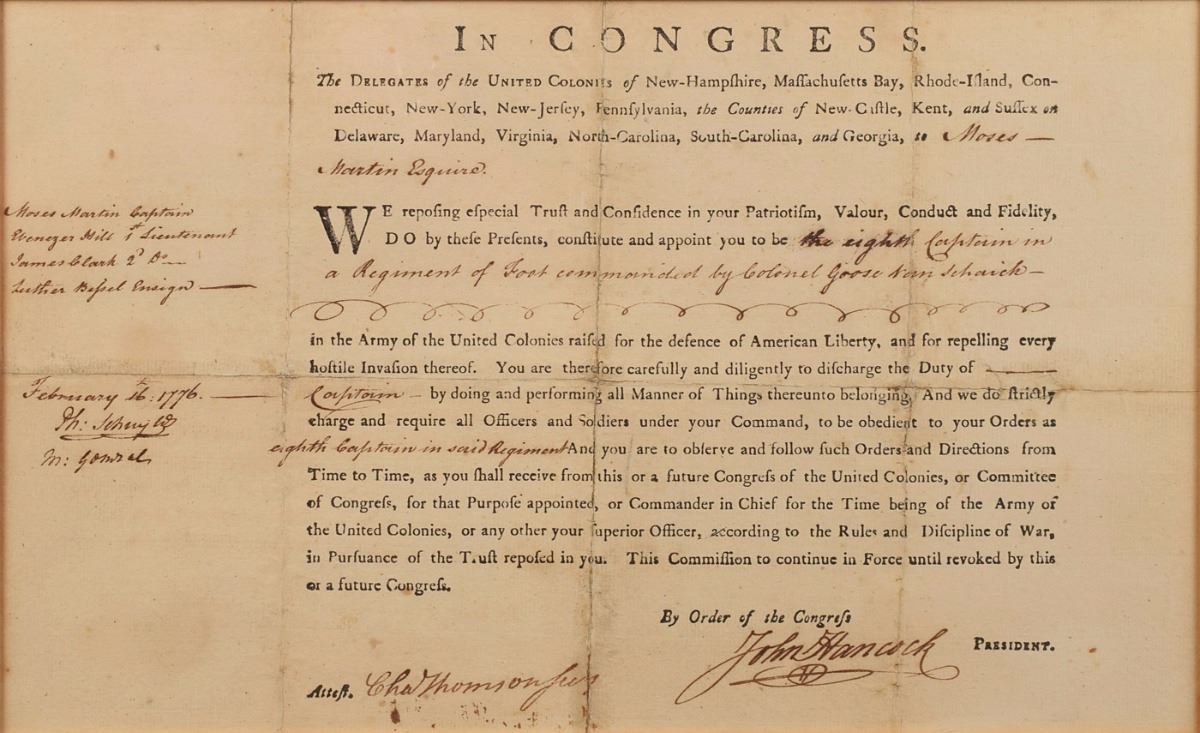 IN CONGRESS.
The DELEGATES of the UNITED COLONIES of New-Hampſhire, Maſſachuſetts Bay, Rhode-Iſland, Con-
necticut, New-York, New-Jerſey, Pennſylvania, the Counties of New-Caſtle, Kent, and Suſſex on
Delaware, Maryland, Virginia, North-Carolina, South-Carolina, and Georgia, to Moses —
Martin Esquire.
WE repoſing eſpecial Truſt and Confidence in your Patriotiſm, Valour, Conduct and Fidelity,
DO by theſe Preſents, conſtitute and appoint you to be the eighth Captain in
a Regiment of Foot commanded by Colonel Goose Van Schaick —
in the Army of the United Colonies raiſed for the defence of American Liberty, and for repelling every
hoſtile Invaſion thereof. You are therefore carefully and diligently to diſcharge the Duty of ———
Captain — by doing and performing all Manner of Things thereunto belonging, And we do ſtrictly
charge and require all Officers and Soldiers under your Command, to be obedient to your Orders as
eighth Captain in said Regiment And you are to obſerve and follow ſuch Orders and Directions from
Time to Time, as you ſhall receive from this or a future Congreſs of the United Colonies, or Committee
of Congreſs, for that Purpoſe appointed, or Commander in Chief for the Time being of the Army of
the United Colonies, or any other your ſuperior Officer, according to the Rules and Diſcipline of War,
in Purſuance of the Truſt repoſed in you. This Commiſſion to continue in Force until revoked by this
or a future Congreſs.
By Order of the Congreſs
John Hancock PRESIDENT.
Atteſt. Cha Thomson secy
Moses Martin Captain
Ebenezer Hill 1st Lieutenant
James Clark 2d Do —
Luther Bessel Ensign —
February 16th: 1776. —
Ph: Schuyler
M: General